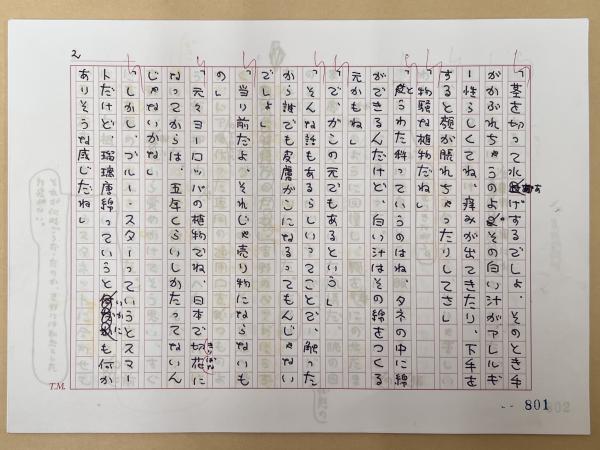 「茎を切って水あげするでしょ、そのとき手
がかぶれちゃうのよ。その白い汁がアレルギ
ー性らしくてね、痒みが出てきたり、下手を
すると顔が腫れちゃったりしてさ」
「物騒な植物だね」
「とうわた科っていうのはね、タネの中に綿
ができるんだけど、白い汁はその綿をつくる
元かもね」
「で、がこの元でもあるという」
「そんな話もあるらしいってことで、触った
から誰でも皮膚がこになるってもんじゃない
でしょ」
「当り前だよ、それじゃ売り物にならないも
の」
「元々ヨーロッパの植物でね、日本で切花に
きりばな
なってからは、五年くらいしかたってないん
じゃないかな」
「しかし、ブルー・スターっていうとスマー
トだけど、瑠璃唐綿っていうといかにも何か
ありそうな感じだね」
2
T.M.
801